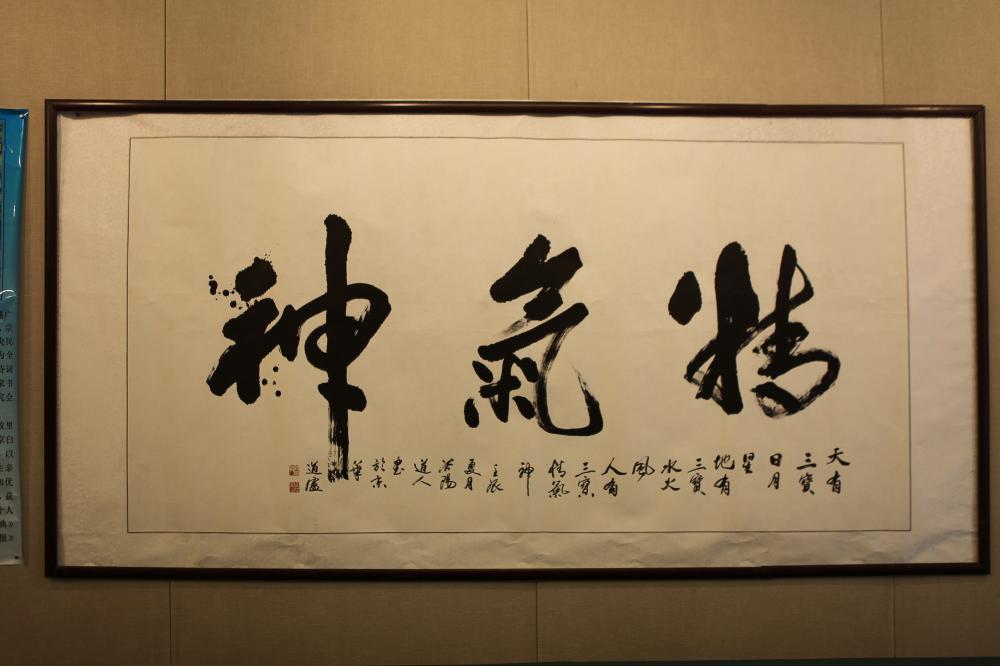 精氣神
天有
三寶
日月
星
地有
三寶
水火
風
人有
三寶
精氣
神
壬辰
夏月
洛陽
道人
書
於京
華
道廬